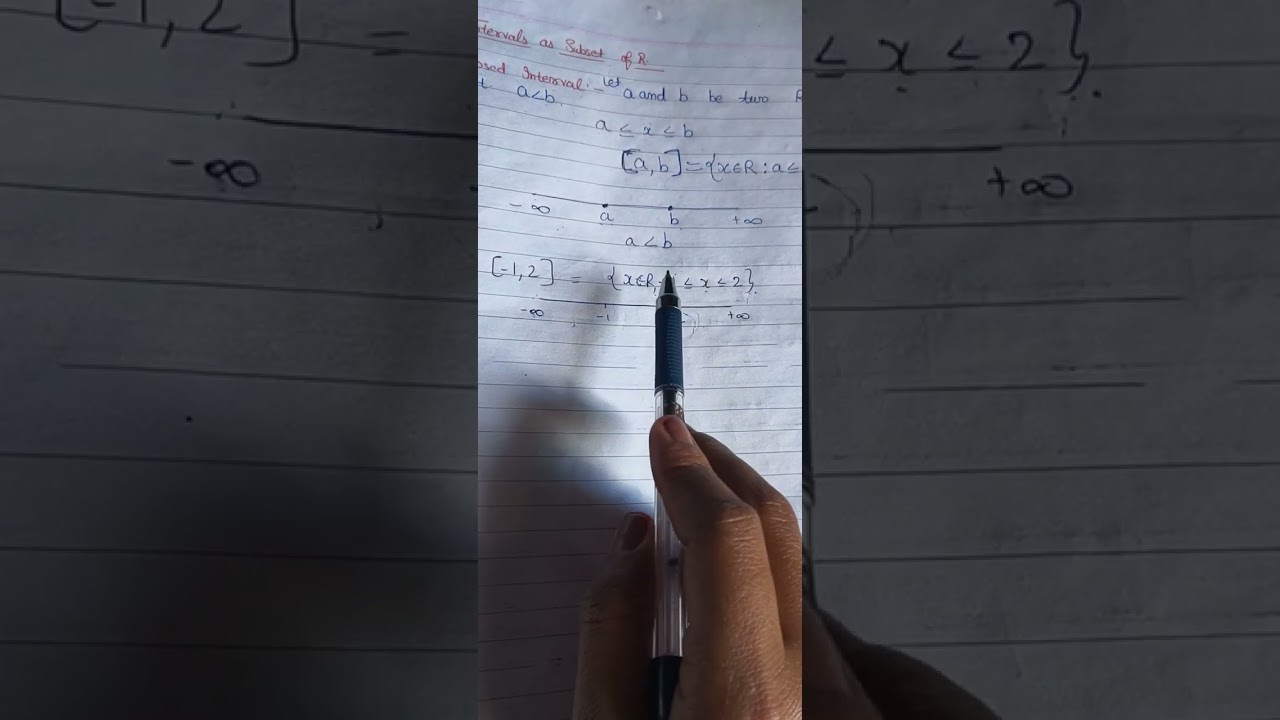 Intervals as Subset of R.
Closed Interval:- Let a and b be two
a<b.
a ≤ x ≤ b
[a,b] = {x∈R : a ≤
-∞ a b +∞
a < b
[-1,2] = {x∈R, ≤ x ≤ 2}.
-∞ -1 +∞